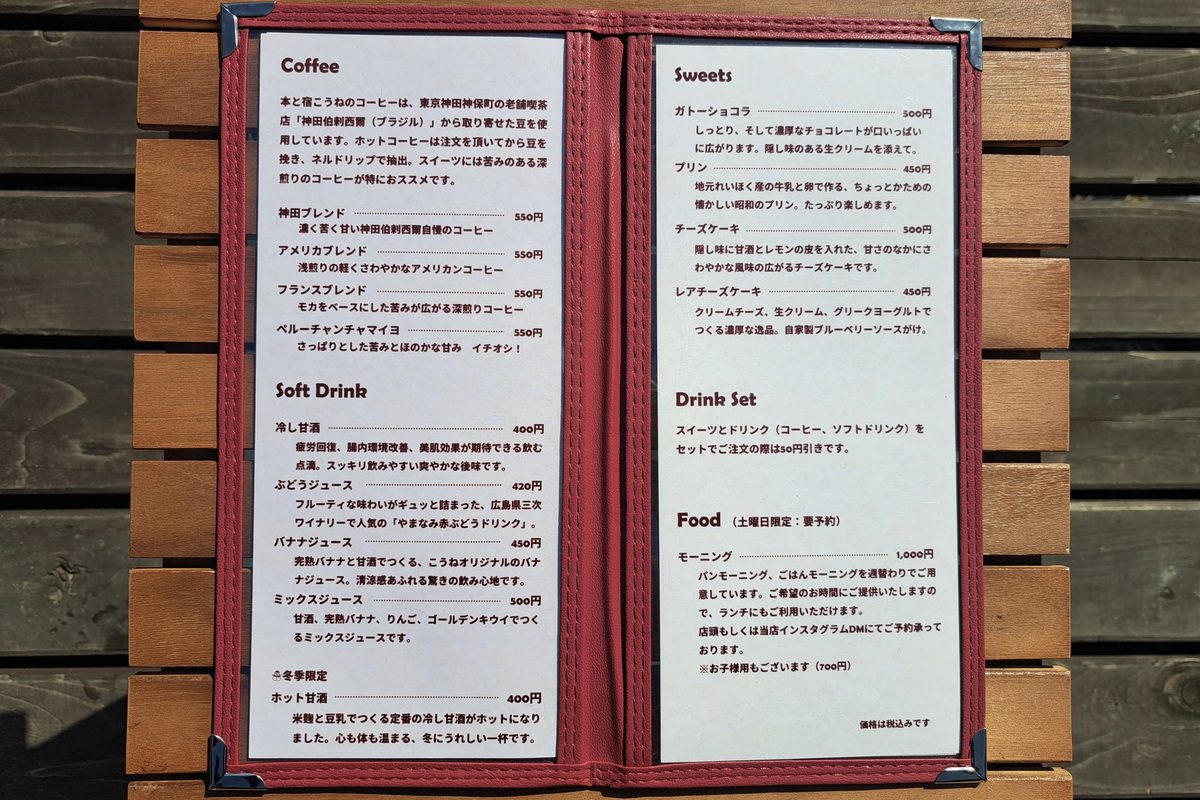 Coffee
本と宿こうねのコーヒーは、東京神田神保町の老舗喫茶
店「神田伯剌西爾（ブラジル）」から取り寄せた豆を使
用しています。ホットコーヒーは注文を頂いてから豆を
挽き、ネルドリップで抽出。スイーツには苦みのある深
煎りのコーヒーが特におススメです。
神田ブレンド 550円
濃く苦く甘い神田伯剌西爾自慢のコーヒー
アメリカブレンド 550円
浅煎りの軽くさわやかなアメリカンコーヒー
フランスブレンド 550円
モカをベースにした苦みが広がる深煎りコーヒー
ペルーチャンチャマイヨ 550円
さっぱりとした苦みとほのかな甘み イチオシ！
Soft Drink
冷し甘酒 400円
疲労回復、腸内環境改善、美肌効果が期待できる飲む
点滴。スッキリ飲みやすい爽やかな後味です。
ぶどうジュース 420円
フルーティな味わいがギュッと詰まった、広島県三次
ワイナリーで人気の「やまなみ赤ぶどうドリンク」。
バナナジュース 450円
完熟バナナと甘酒でつくる、こうねオリジナルのバナ
ナジュース。清涼感あふれる驚きの飲み心地です。
ミックスジュース 500円
甘酒、完熟バナナ、りんご、ゴールデンキウイでつく
るミックスジュースです。
☃冬季限定
ホット甘酒 400円
米麹と豆乳でつくる定番の冷し甘酒がホットになり
ました。心も体も温まる、冬にうれしい一杯です。
Sweets
ガトーショコラ 500円
しっとり、そして濃厚なチョコレートが口いっぱい
に広がります。隠し味のある生クリームを添えて。
プリン 450円
地元れいほく産の牛乳と卵で作る、ちょっとかための
懐かしい昭和のプリン。たっぷり楽しめます。
チーズケーキ 500円
隠し味に甘酒とレモンの皮を入れた、甘さのなかにさ
わやかな風味の広がるチーズケーキです。
レアチーズケーキ 450円
クリームチーズ、生クリーム、グリークヨーグルトで
つくる濃厚な逸品。自家製ブルーベリーソースがけ。
Drink Set
スイーツとドリンク（コーヒー、ソフトドリンク）を
セットでご注文の際は50円引きです。
Food （土曜日限定：要予約）
モーニング 1,000円
パンモーニング、ごはんモーニングを週替わりでご用
意しています。ご希望のお時間にご提供いたしますの
で、ランチにもご利用いただけます。
店頭もしくは当店インスタグラムDMにてご予約承って
おります。
※お子様用もございます（700円）
価格は税込みです